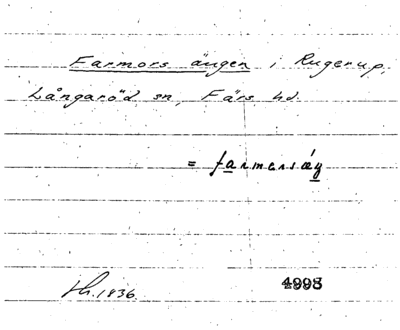 Farmors ängen i Rugerup,
Långaröd sn, Färs hd.
= farmersæŋ
1936.
4998